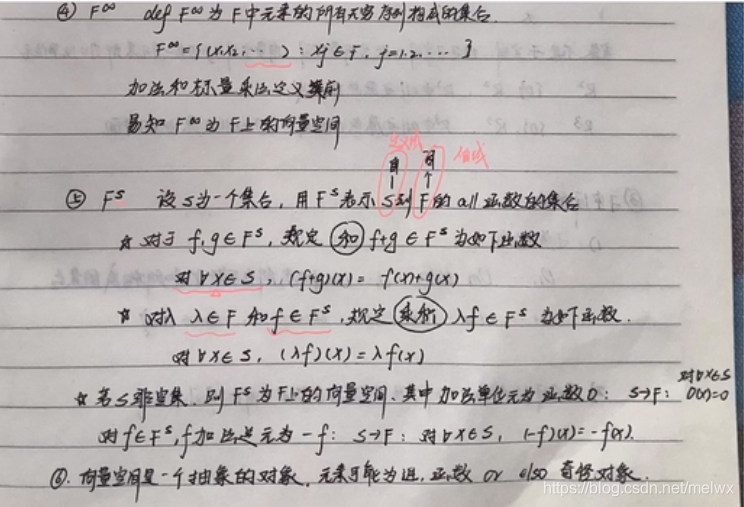 ④ F^∞ def F^∞ 为 F 中元素的所有无穷序列构成的集合.
F^∞ = {(x₁, x₂, ……) : xj ∈ F, j=1.2. …… }
加法和标量乘法定义
易知 F^∞ 为 F 上的向量空间
定义域 值域
⑤ F^S 设 S 为一个集合, 用 F^S 表示 S 到 F 的 all 函数的集合
☆ 对于 f, g ∈ F^S, 规定 和 f+g ∈ F^S 为如下函数
对 ∀x∈S, (f+g)(x) = f(x)+g(x)
☆ 对 λ∈F 和 f∈F^S, 规定 乘积 λf ∈ F^S 为如下函数.
对 ∀x∈S, (λf)(x) = λf(x)
对∀x∈S
☆ 若 S 非空集, 则 F^S 为 F 上的向量空间、其中加法单位元为函数 0: S→F: 0(x)=0
对 f∈F^S, f 加法逆元为 -f: S→F: 对 ∀x∈S, (-f)(x) = -f(x).
⑥. 向量空间是一个抽象的对象. 元素可能为 函数 or also 奇怪对象.
https://blog.csdn.net/melwx